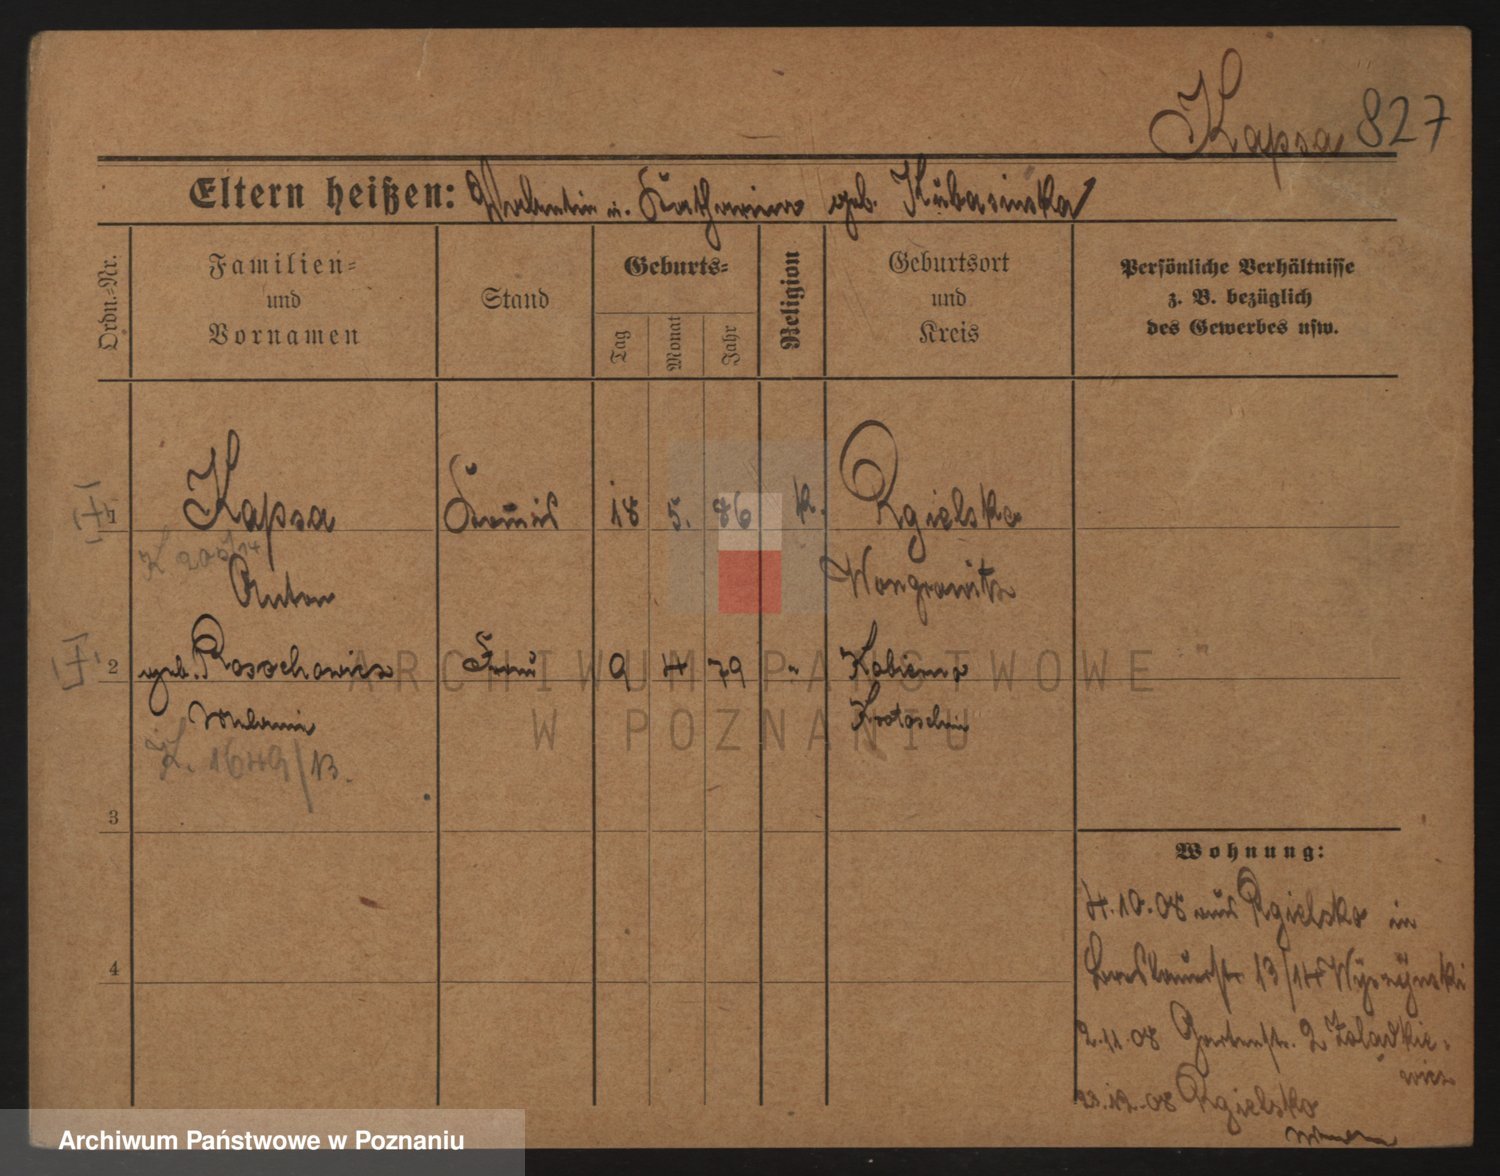 Kapsa 827
Eltern heißen: Valentin u. Katharina geb. Kubasinska
Ordn.-Nr.
Familien-
und
Vornamen
Stand
Geburts-
Tag
Monat
Jahr
Religion
Geburtsort
und
Kreis
Persönliche Verhältnisse
z. B. bezüglich
des Gewerbes usw.
1 Kapsa 18 5. 86 k. Rgielsko
Anton Wongrowitz
2 geb. Rosschowicz Frau 9 4 79 " Kobierno
Melanie Krotoschin
K. 1649/13.
3
4
Wohnung:
4.10.08 aus Rgielsko in
Breslauerstr 13/14 Wyrzynski
2.11.08 Gartenstr. 2 Zoladkie-
wicz
23.12.08 Rgielsko
ARCHIWUM PAŃSTWOWE
W POZNANIU
Archiwum Państwowe w Poznaniu